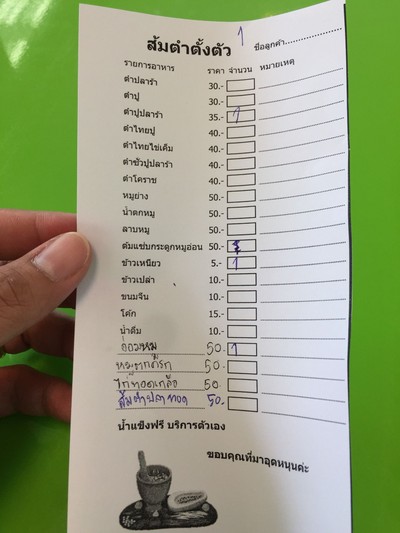 ส้มตำตั้งตัว 1 ชื่อลูกค้า....................
รายการอาหาร ราคา จำนวน หมายเหตุ
ตำปลาร้า 30.-
ตำปู 30.-
ตำปูปลาร้า 35.- 1
ตำไทยปู 40.-
ตำไทยไข่เค็ม 40.-
ตำซั่วปูปลาร้า 40.-
ตำโคราช 40.-
หมูย่าง 50.-
น้ำตกหมู 50.-
ลาบหมู 50.-
ต้มแซ่บกระดูกหมูอ่อน 50.-
ข้าวเหนียว 5.- 1
ข้าวเปล่า 10.-
ขนมจีน 10.-
โค้ก 15.-
น้ำดื่ม 10.-
อ่อมหมู 50. 1
50.
ไก่ทอดเกลือ 50.
ส้มตำปลาทอด 50.-
น้ำแข็งฟรี บริการตัวเอง
ขอบคุณที่มาอุดหนุนค่ะ